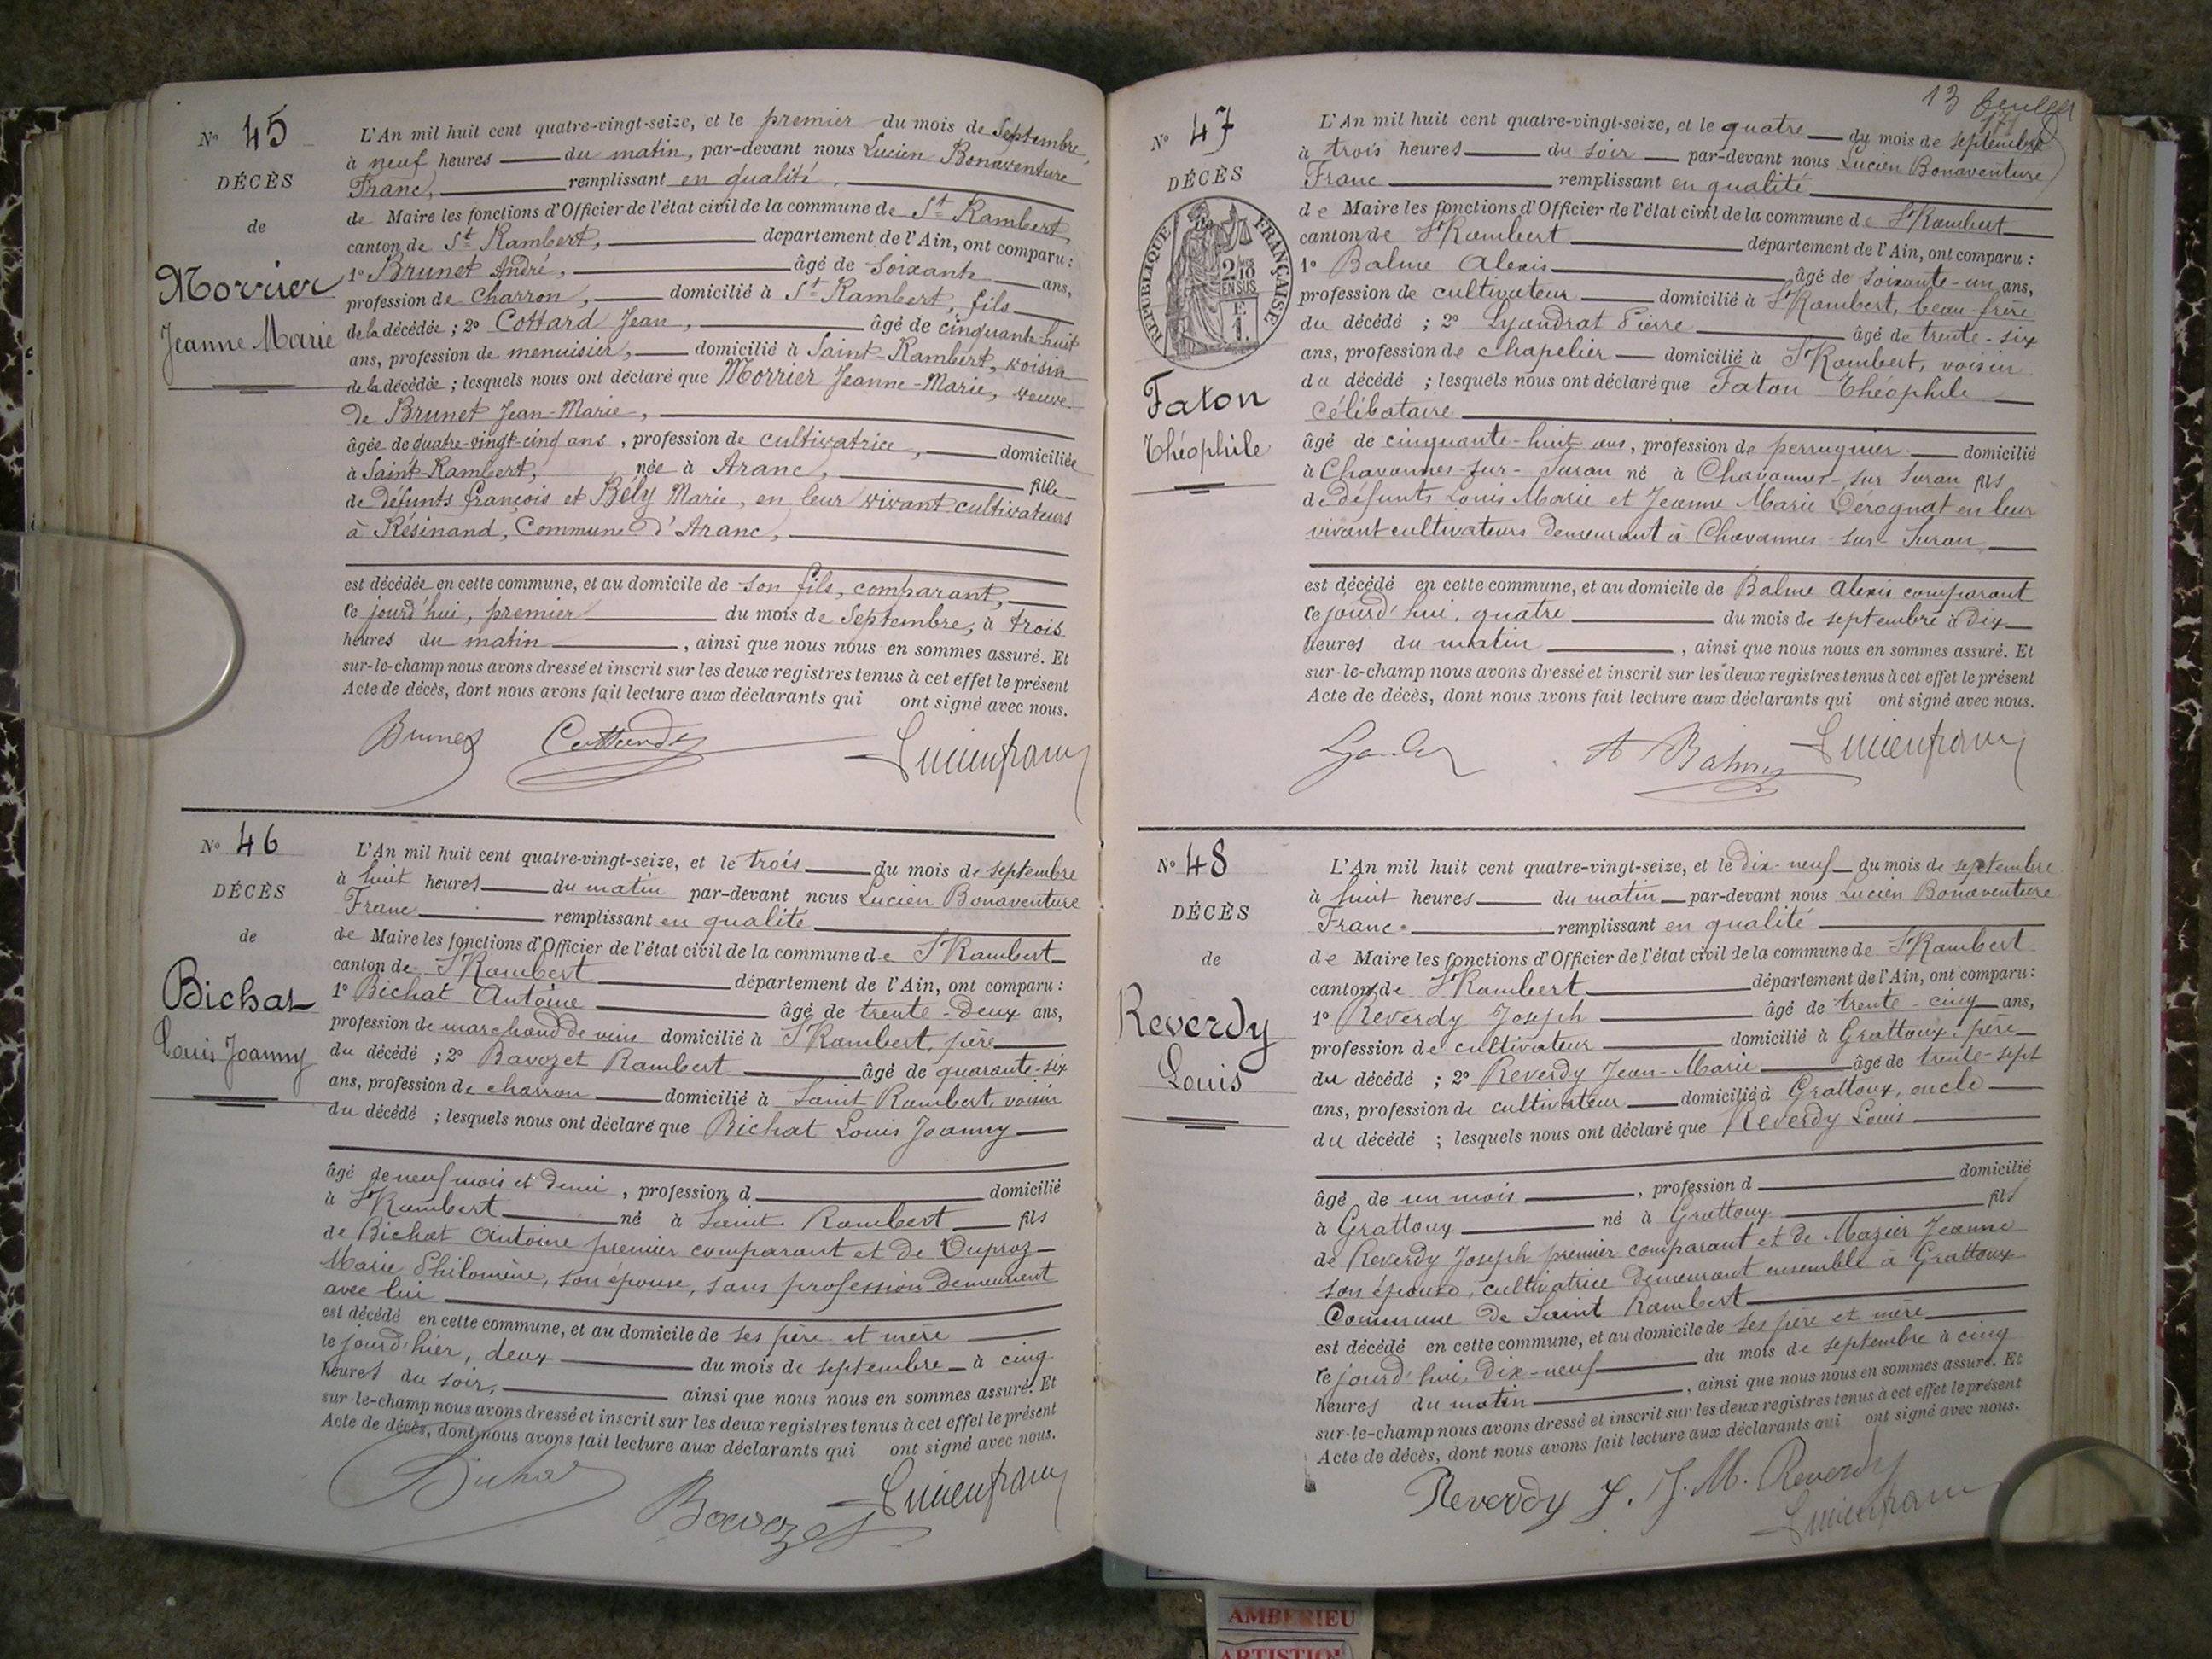 N° 45
DÉCÈS
de
Morrier
Jeanne Marie
L'An mil huit cent quatre-vingt-seize, et le premier du mois de Septembre,
à neuf heures du matin, par-devant nous Lucien Bonaventure
Franc, remplissant en qualité
de Maire les fonctions d'Officier de l'état civil de la commune de St Rambert,
canton de St Rambert, département de l'Ain, ont comparu :
1° Brunet André, âgé de soixante ans,
profession de charron, domicilié à St Rambert, fils
de la décédée ; 2° Cottard Jean, âgé de cinquante-huit
ans, profession de menuisier, domicilié à Saint-Rambert, voisin
de la décédée ; lesquels nous ont déclaré que Morrier Jeanne-Marie, veuve
de Brunet Jean-Marie,
âgée de quatre-vingt-cinq ans, profession de cultivatrice, domiciliée
à Saint-Rambert, née à Aranc, fille
de défunts françois et Bély Marie, en leur vivant cultivateurs
à Résinand, Commune d'Aranc,
est décédée en cette commune, et au domicile de son fils, comparant,
ce jourd'hui, premier du mois de Septembre, à trois
heures du matin, ainsi que nous nous en sommes assuré. Et
sur-le-champ nous avons dressé et inscrit sur les deux registres tenus à cet effet le présent
Acte de décès, dont nous avons fait lecture aux déclarants qui ont signé avec nous.
Brunet Lucien franc
N° 46
DÉCÈS
de
Bichat
Louis Joanny
L'An mil huit cent quatre-vingt-seize, et le trois du mois de septembre
à huit heures du matin par-devant nous Lucien Bonaventure
Franc remplissant en qualité
de Maire les fonctions d'Officier de l'état civil de la commune de St Rambert
canton de St Rambert département de l'Ain, ont comparu :
1° Bichat Antoine âgé de trente-deux ans,
profession de marchand de vins domicilié à St Rambert, père
du décédé ; 2° Bavozet Rambert âgé de quarante-six
ans, profession de charron domicilié à Saint Rambert, voisin
du décédé ; lesquels nous ont déclaré que Bichat Louis Joanny
âgé de neuf mois et demi, profession d domicilié
à St Rambert né à Saint Rambert fils
de Bichat Antoine premier comparant et de Dupraz
Marie Philomène, son épouse, sans profession demeurant
avec lui
est décédé en cette commune, et au domicile de ses père et mère
le jourd'hier, deux du mois de septembre à cinq
heures du soir, ainsi que nous nous en sommes assuré. Et
sur-le-champ nous avons dressé et inscrit sur les deux registres tenus à cet effet le présent
Acte de décès, dont nous avons fait lecture aux déclarants qui ont signé avec nous.
Bichat Bavozet Lucien franc
13
N° 47
DÉCÈS
RÉPUBLIQUE FRANÇAISE
EN SUS
Faton
Théophile
L'An mil huit cent quatre-vingt-seize, et le quatre du mois de septembre
à trois heures du soir par-devant nous Lucien Bonaventure
Franc remplissant en qualité
de Maire les fonctions d'Officier de l'état civil de la commune de St Rambert
canton de St Rambert département de l'Ain, ont comparu :
1° Balme Alexis âgé de soixante-un ans,
profession de cultivateur domicilié à St Rambert, beau-frère
du décédé ; 2° Lyaudrat Pierre âgé de trente-six
ans, profession de chapelier domicilié à St Rambert, voisin
du décédé ; lesquels nous ont déclaré que Faton Théophile
célibataire
âgé de cinquante-huit ans, profession de perruquier domicilié
à Chavannes-sur-Suran né à Chavannes-sur Suran fils
de défunts Louis Marie et Jeanne Marie Dérognat en leur
vivant cultivateurs demeurant à Chavannes-sur-Suran
est décédé en cette commune, et au domicile de Balme Alexis comparant
ce jourd'hui, quatre du mois de septembre à dix
heures du matin, ainsi que nous nous en sommes assuré. Et
sur-le-champ nous avons dressé et inscrit sur les deux registres tenus à cet effet le présent
Acte de décès, dont nous avons fait lecture aux déclarants qui ont signé avec nous.
A Balme Lucien franc
N° 48
DÉCÈS
de
Reverdy
Louis
L'An mil huit cent quatre-vingt-seize, et le dix-neuf du mois de septembre
à huit heures du matin par-devant nous Lucien Bonaventure
Franc remplissant en qualité
de Maire les fonctions d'Officier de l'état civil de la commune de St Rambert
canton de St Rambert département de l'Ain, ont comparu :
1° Reverdy Joseph âgé de trente-cinq ans,
profession de cultivateur domicilié à Grattoux, père
du décédé ; 2° Reverdy Jean-Marie âgé de trente-sept
ans, profession de cultivateur domicilié à Grattoux, oncle
du décédé ; lesquels nous ont déclaré que Reverdy Louis
âgé de un mois, profession d domicilié
à Grattoux né à Grattoux fils
de Reverdy Joseph premier comparant et de Mazier Jeanne
son épouse, cultivatrice demeurant ensemble à Grattoux
Commune de Saint Rambert
est décédé en cette commune, et au domicile de ses père et mère
ce jourd'hui, dix-neuf du mois de septembre à cinq
heures du matin, ainsi que nous nous en sommes assuré. Et
sur-le-champ nous avons dressé et inscrit sur les deux registres tenus à cet effet le présent
Acte de décès, dont nous avons fait lecture aux déclarants qui ont signé avec nous.
Reverdy J. J. M. Reverdy
Lucien franc
AMBERIEU